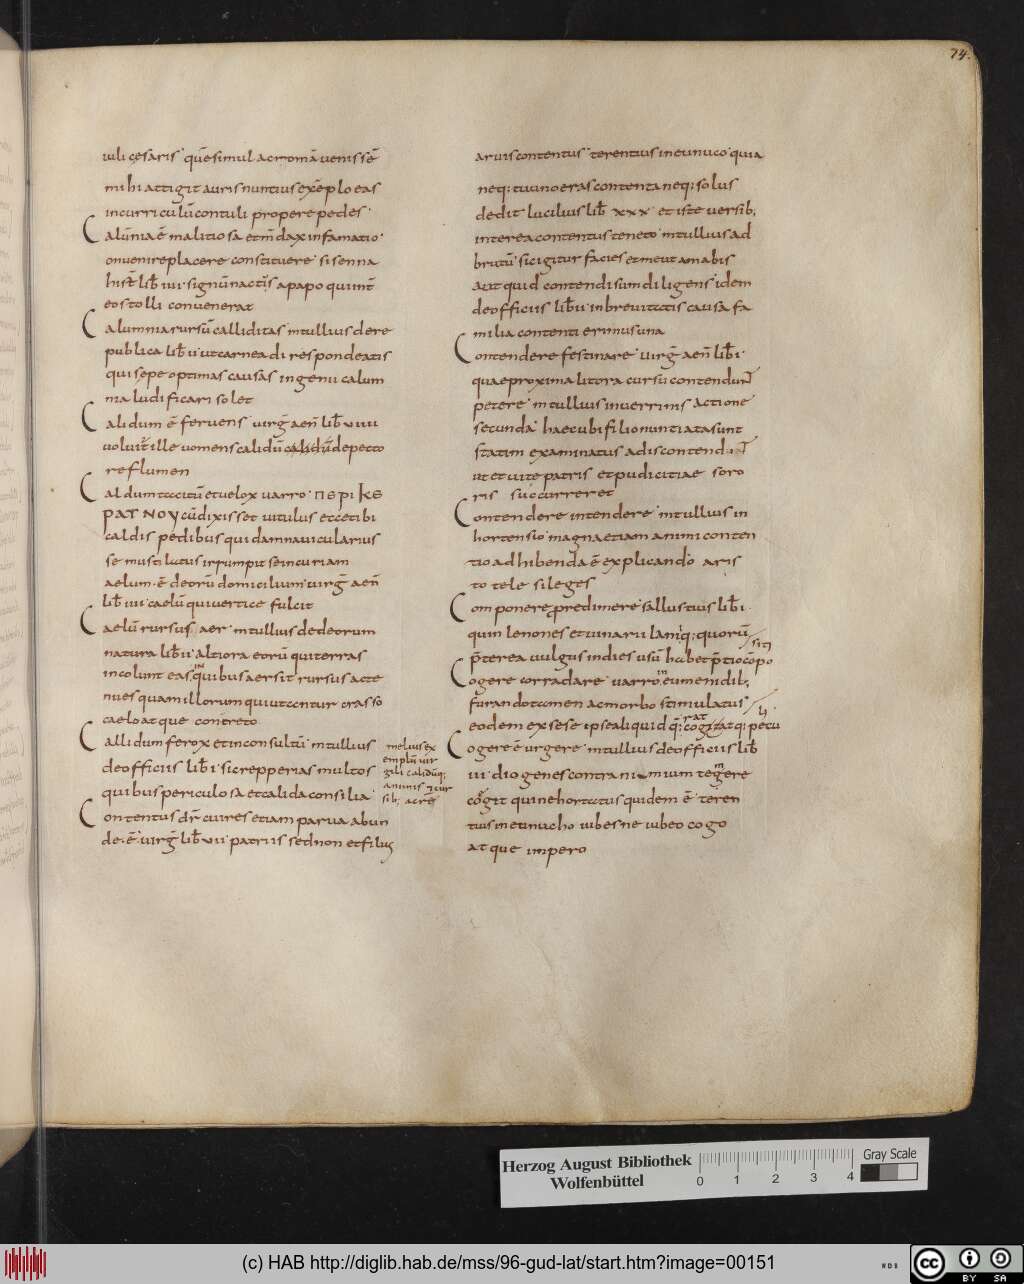 74.
iuli cęsaris quęsimul acromā uenissē
mihi attigit auris nuntius exēplo eas
incurriculū contuli propere pedes
Calūnia ē malitiosa et m̄dax infamatio
onuenire placere constituere sisenna
hist̄ lib̄ iiii signū nactis apapo quiint̄
eos tolli convenerat
Calumnia rursū calliditas mtullius dere
publica lib̄ ii ut carneadi respondeatis
qui sepe optimas causas ingenii calum
nia ludificari solet
Calidum ē fervens virḡ aen̄ lib̄ viiii
uoluit ille uomens calidū depecto
reflumen
Caldum tacitū et uelox uarro περι κε
ΡΑΤ ΝΟΥ cū dixisset uitulus ecce tibi
caldis pedibus qui damnauicularius
se mustilatus irrumpit se incuriam
aelum ē deorū domicilium virḡ aen̄
lib̄ iiii caelū qui vertice fulcit
Caelū rursus aer mtullius dedeorum
natura lib̄ ii altiora eorū qui terras
incolunt eas quibus aersit rursus acte
nues quam illorum qui utantur crasso
caelo atque concreto
Callidum ferox et inconsultū mtullius
deofficiis lib̄ i sic repperias multos
quibus periculosa et calida consilia
melius ex
emplū uir
gili calidūq;
animis ⁊ cur
sib; acrē
Contentus dr̄ cui res etiam parua abun
de ē virḡ lib̄ vii patriis sed non et filius
aruis contentus terentius in eunuco quia
neq; tu uno eras contenta neq; solus
dedit lucilius lib̄ xxx et iste uersib;
interea contentus teneto mtullius ad
brutū sic igitur facies et me ut amabis
aut quid contendisum diligens idem
deofficiis lib̄ ii in brevitatis causa fa
milia contenti erimus una
Contendere festinare virḡ aen̄ lib̄ i
quae proxima litora cursu contendunt
petere mtullius inuerrinis actione
secunda haec ubi filio nuntiata sunt
statim examinatus adis contend
ut et uite patris et pudicitiae soro
ris succurreret
Contendere intendere mtullius in
hortensio magna etiam animi conten
tio adhibenda ē explicando aris
totele sileges
Componere predimere sallustius lib̄ i
quin lenones et uinarii laniiq; quorū
p̄terea uulgus indies usū habet p̄tio cōpo
siti
Cogere corradare uarro eumenidib;
furandotamen ac morbo stimulatus
eodem ex sese ipse aliquid q; cogitatq; pecu
rat
Cogere ē urgere mtullius deofficiis lib̄
iii diogenes contra nimium tegere
cogit qui ne hortatus quidem ē teren
tius in eunucho iubesne iubeo cogo
atque impero
Herzog August Bibliothek
Wolfenbüttel
0 1 2 3 4
Gray Scale
(c) HAB http://diglib.hab.de/mss/96-gud-lat/start.htm?image=00151
WDB
cc BY SA